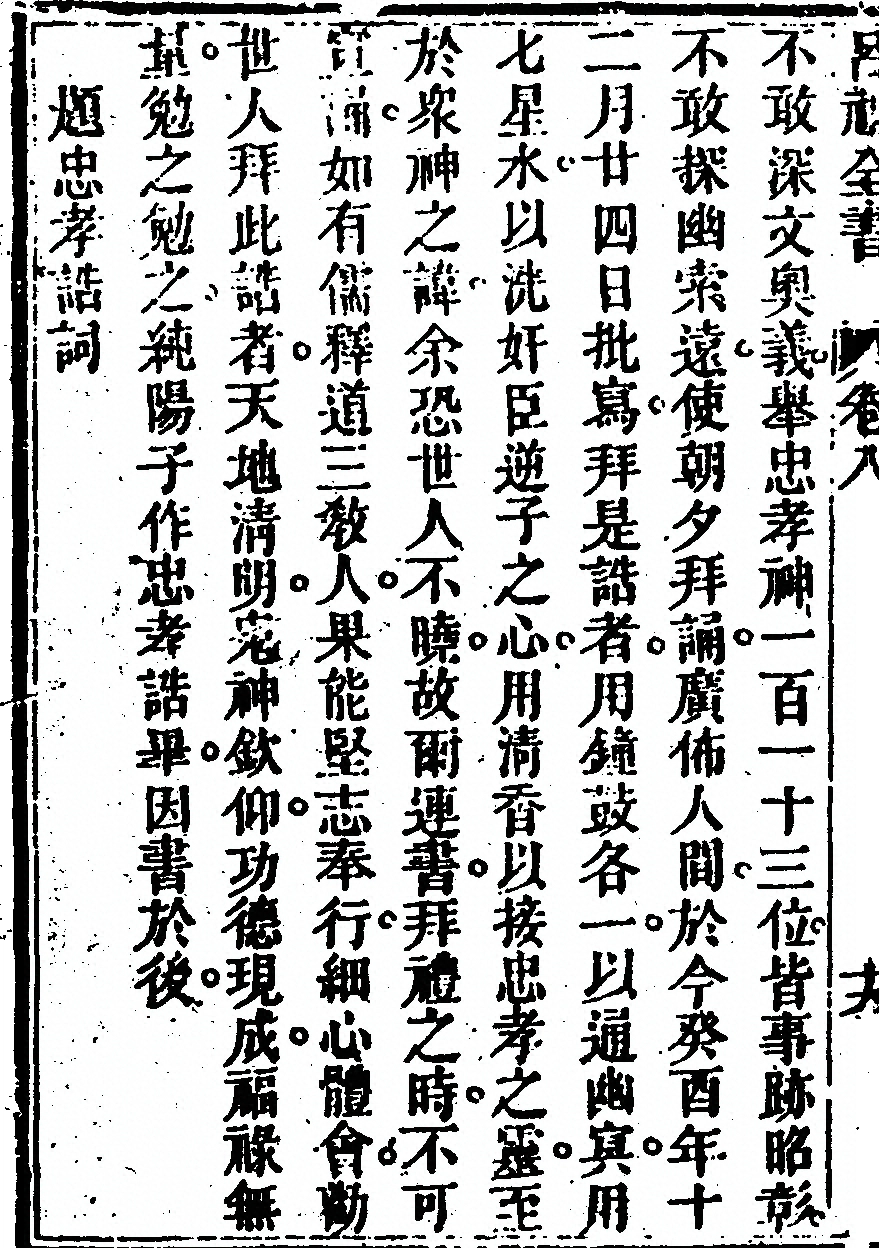 呂祖全書 卷八 十六
不敢深文奧義舉忠孝神一百一十三位皆事跡昭彰
不敢探幽索遠使朝夕拜誦廣佈人間於今癸酉年十
二月廿四日批寫拜是誥者用鐘鼓各一以通幽冥用
七星水以洗奸臣逆子之心用清香以接忠孝之靈至
於衆神之諱余恐世人不曉故爾連書拜禮之時不可
宣誦如有儒釋道三教人果能堅志奉行細心體會勸
世人拜此誥者天地清明鬼神欽仰功德現成福祿無
量勉之勉之純陽子作忠孝誥畢因書於後
題忠孝誥詞